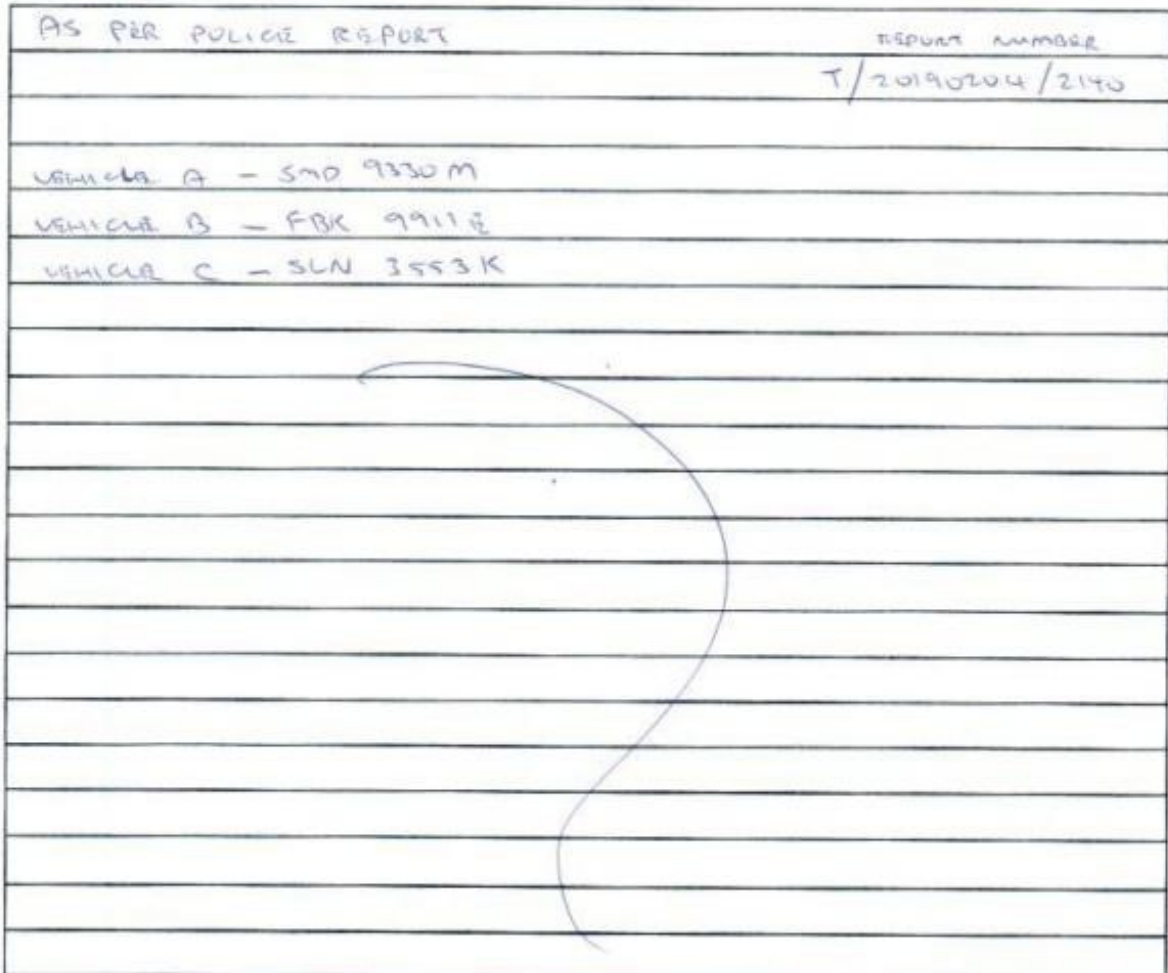 AS PER POLICE REPORT
REPORT NUMBER
T/20190204/2140
VEHICLE A - SMD 9330M
VEHICLE B - FBK 9911E
VEHICLE C - SLN 3553K